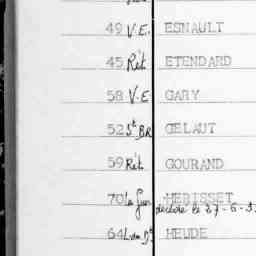 49 V.E. ESNAULT
45 Rit. ETENDARD
58 V.E GARY
52 St BR GELAUT
59 Rit. GOURAND
70 la Guer HEBISSET
décédé le 27-6-
64 HEUDE